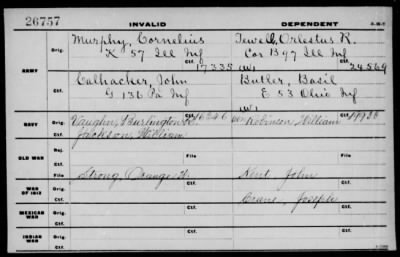 26757
INVALID
DEPENDENT
ARMY
Orig.
Murphy, Cornelius
K 57 Ill Inf
Jewell, Orlestus R.
Cor B 97 Ill Inf
Ctf.
17335
(W)
24569
Orig.
Calhacher, John
G 136 Pa Inf
Butler, Basil
E 53 Ohio Inf
Ctf.
(W)
NAVY
Orig.
Vaughn, Burlington
Robinson, William
Ctf.
Jackson, William
Ctf.
OLD WAR
Rej.
Ctf.
File
File
WAR OF 1812
Orig.
Strong, Orange
Kent, John
Ctf.
Ctf.
MEXICAN WAR
Orig.
Crane, Joseph
Ctf.
Ctf.
INDIAN WAR
Orig.
Ctf.
Ctf.